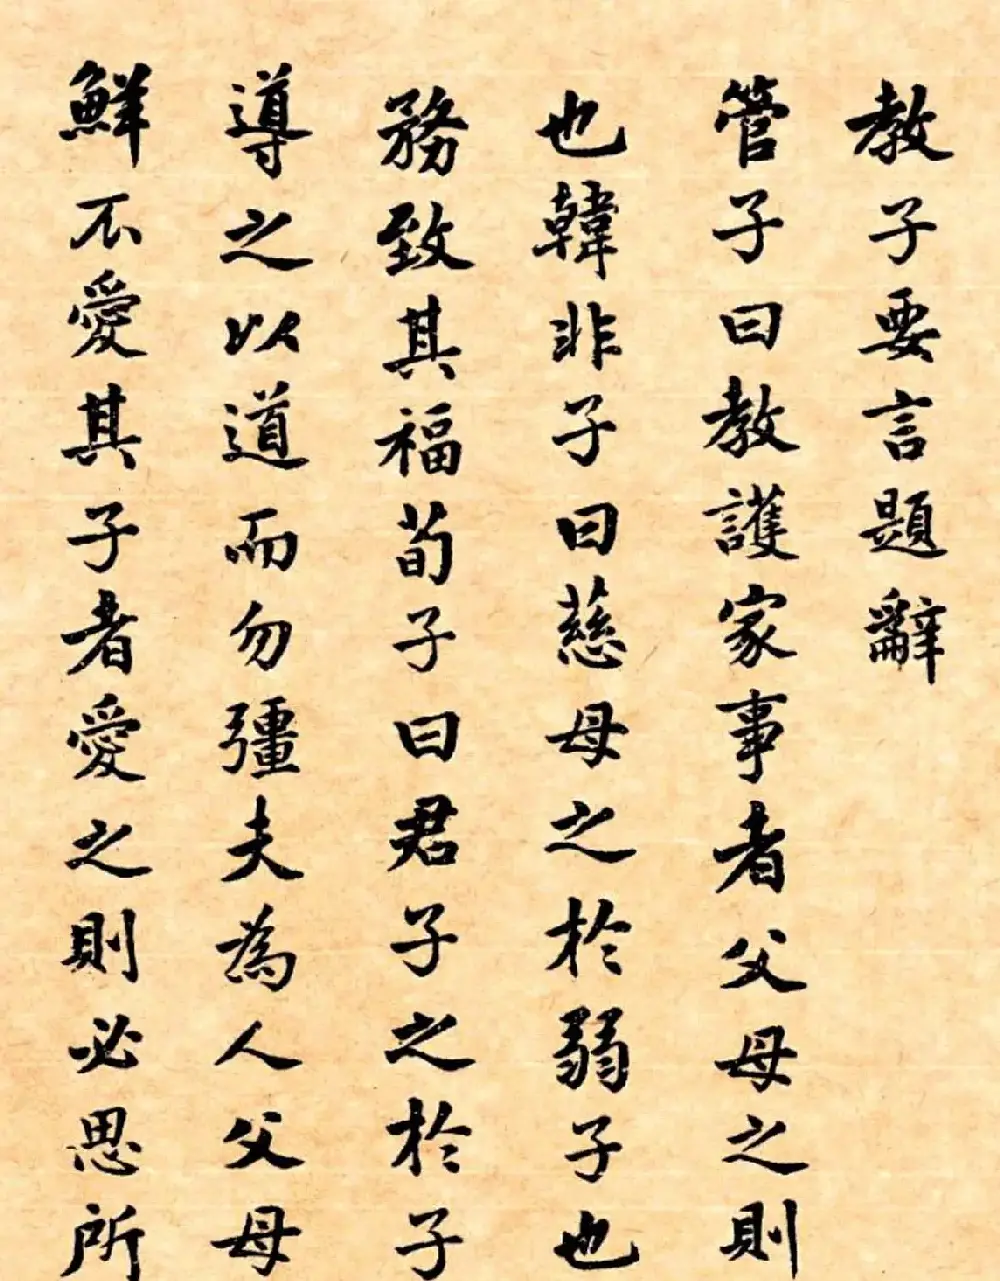 教子要言題辭
管子曰教護家事者父母之則
也韓非子曰慈母之於弱子也
務致其福荀子曰君子之於子
導之以道而勿彊夫為人父母
鮮不愛其子者愛之則必思所